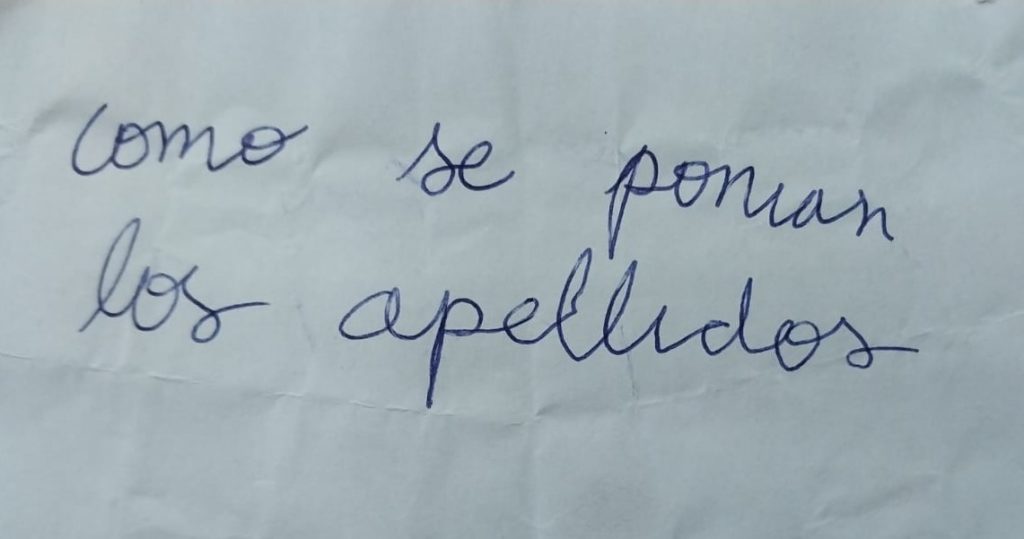 como se ponian
los apellidos